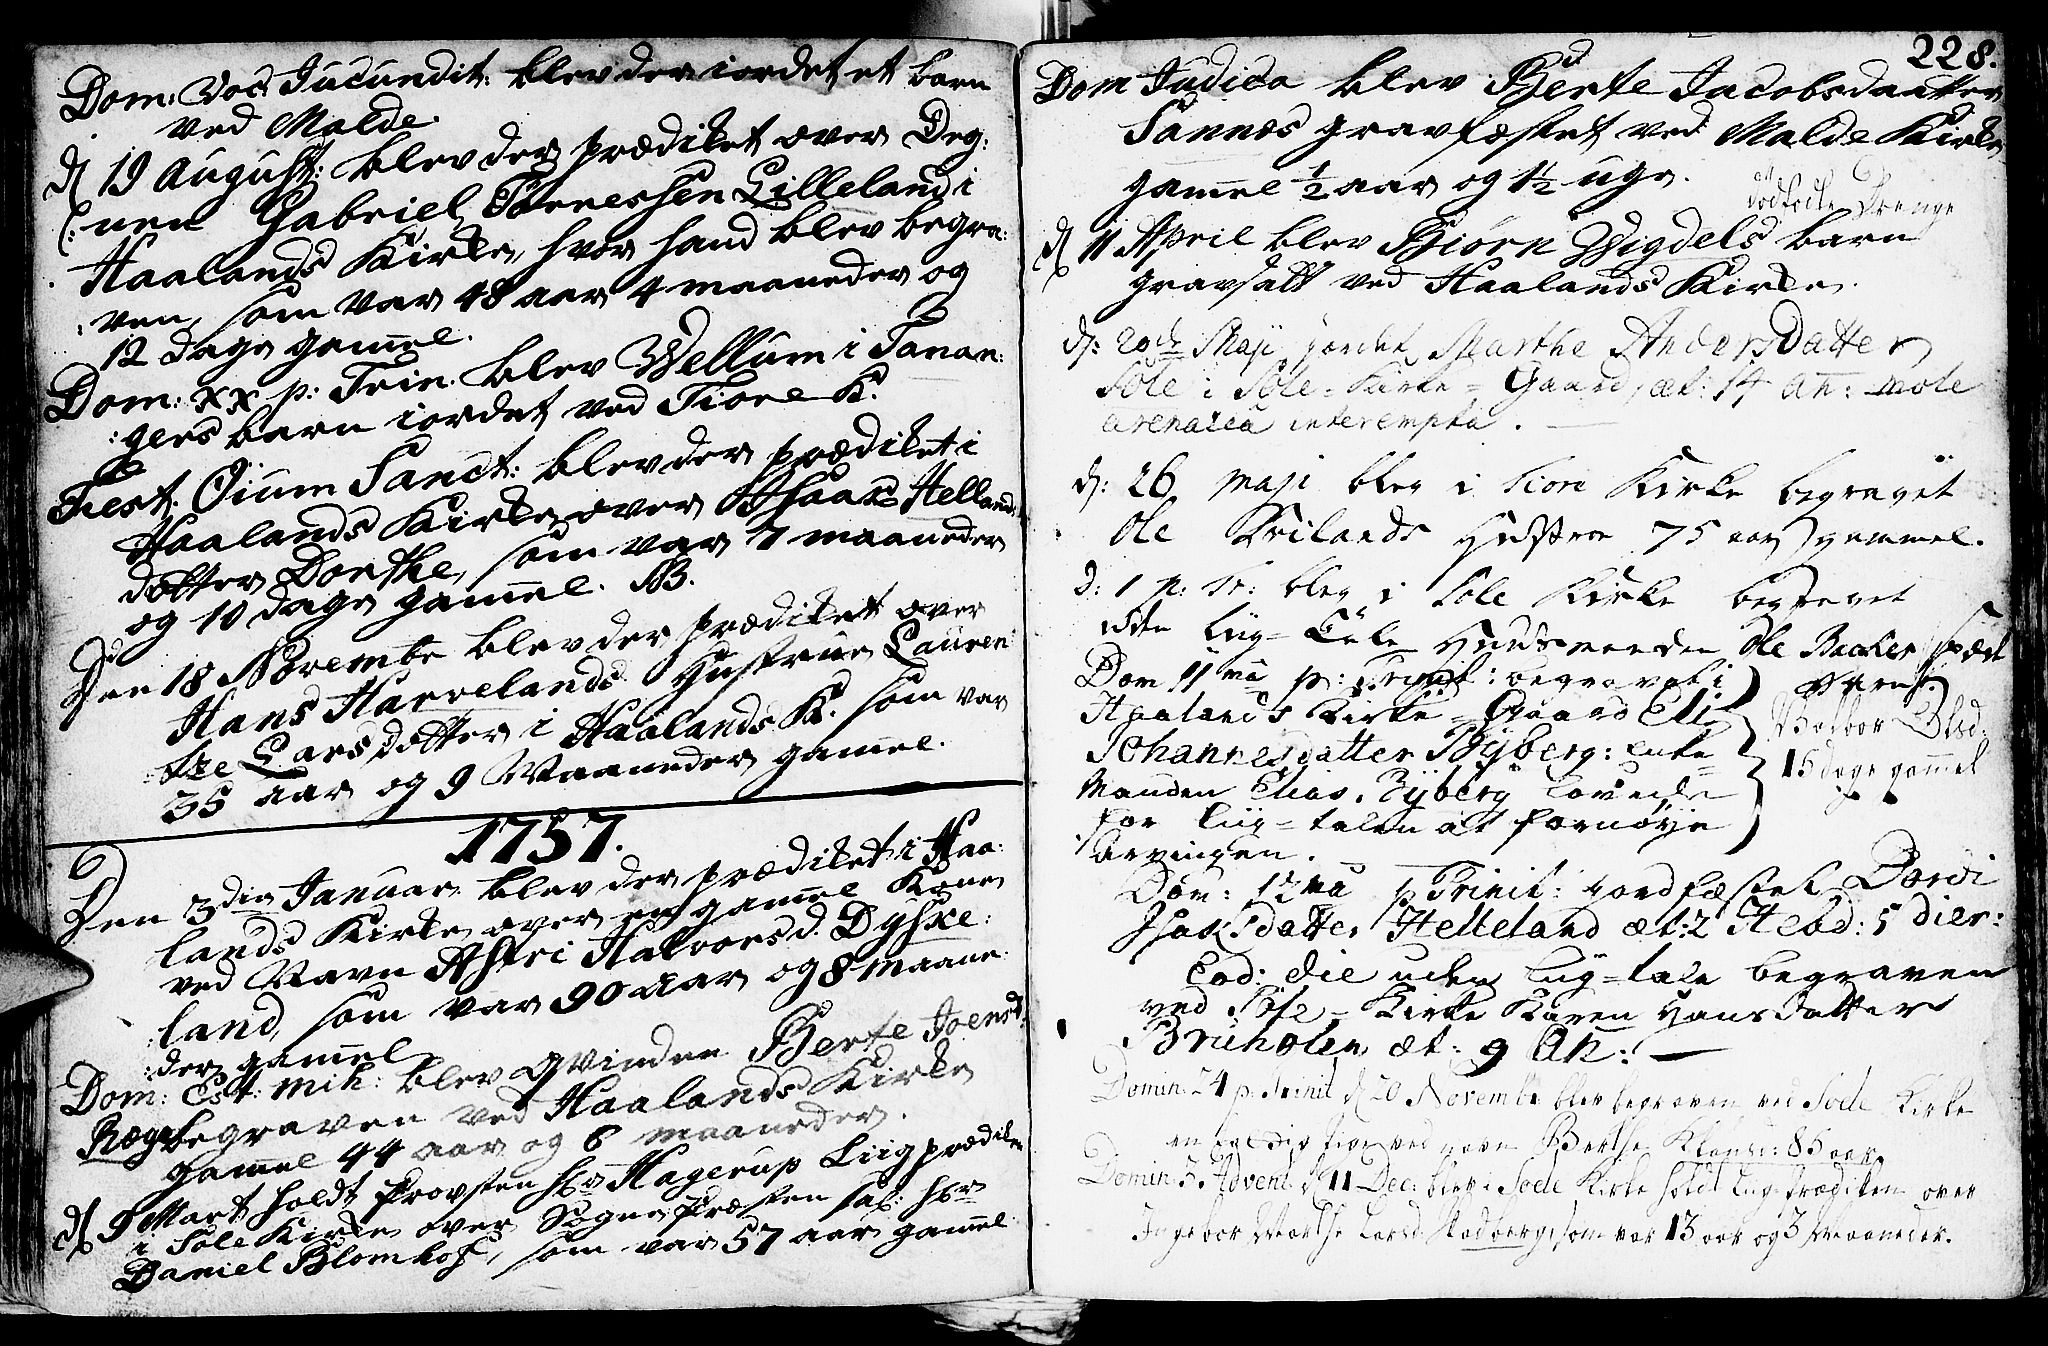 Dom: Voc Jucundit: blev der iordet et barn
ved Malde.
d 19 August: blev der prædiket over Deg:
:nen Gabriel Tørnessen Lilleland i
Haalands Kirke, hvor hand blev begra:
:ven, som var 48 aar 4 maaneder og
12 dage gamel.
Dom: XX p: Trin. blev Wellum i Tanan:
:gers barn iordet ved Tiore K.
Fest: Oium Sanct: blev der prædiket i
Haalands Kirke over Isaac Hellands
datter Dorthe, som var 7 maaneder
og 10 dage gamel. NB.
Den 18 Novembr blev der prædiket over
Hans Harvelands Hustrue Lauren
:tze Larsdatter i Haalands K. som var
35 aar og 9 Maaneder gamel.
1757.
Den 3die Januar blev der prædiket i Haa:
lands Kirke over en gamel Kone
ved Navn Astri Halvorsd. Dyske:
:land, som var 90 aar og 8 maane:
:der gamel
Dom: Est: mih: blev qvinden Berte Joensd:
Ræge begraven ved Haalands Kirke
gamel 44 aar og 6 maaneder.
d 9 Mart holdt Provsten Hr Hagerup Liigprædiken
i Sole Kirke over Sogne Præsten sal: Hr
Daniel Blomhof, som var 57 aar gamel
228.
Dom Judica blev Berte Jacobsdaatter
Sannes gravfæstet ved Malde Kirke
gamel ½ aar og 1½ uge.
et
dødfødte Drenge
d 11 April blev Biørn Wigdels barn
gravsatt ved Haalands Kirke.
d: 20de Maji jordet Marthe AndersDatter
Sole i Sole-Kirke-Gaard, æt: 14 an: mole
arenacea interempta.
d: 26 Maji blev i Tiore Kirke begravet
Ole Hustroe 75 aar gammel.
d: 1 p: Tr: blev i Sole Kirke begravet
uden Liig-Tale Huusmanden Ole
Dom 11ma p: Trinit: begravet i
Haalands Kirke-Gaard Elie
Johannesdatter Byberg: Enke-
Manden Elias Byberg lovede
for Liig-talen at fornøye
Arvingen.
15 dage gamel
Dom: 12ma p Trinit: jordfæstet Dordi
Isaksdatter Helleland æt: 2 Hebd: 5 dier:
Eod: die uden Liig-tale begraven
ved Sole-Kirke Karen Hansdatter
Bruhølen æt: 9 An:
Domin: 24 p: Trinit d 20 Novembr blev begraven ved Soele Kirke
en ved navn Berthe Klausd: 86 aar.
Domin: 3 Advent d 11 Dec: blev i Soele Kirke holdt Liig-Prædiken over
Ingebor Marthe Larsd: som var 13 aar og 3 Maaneder.